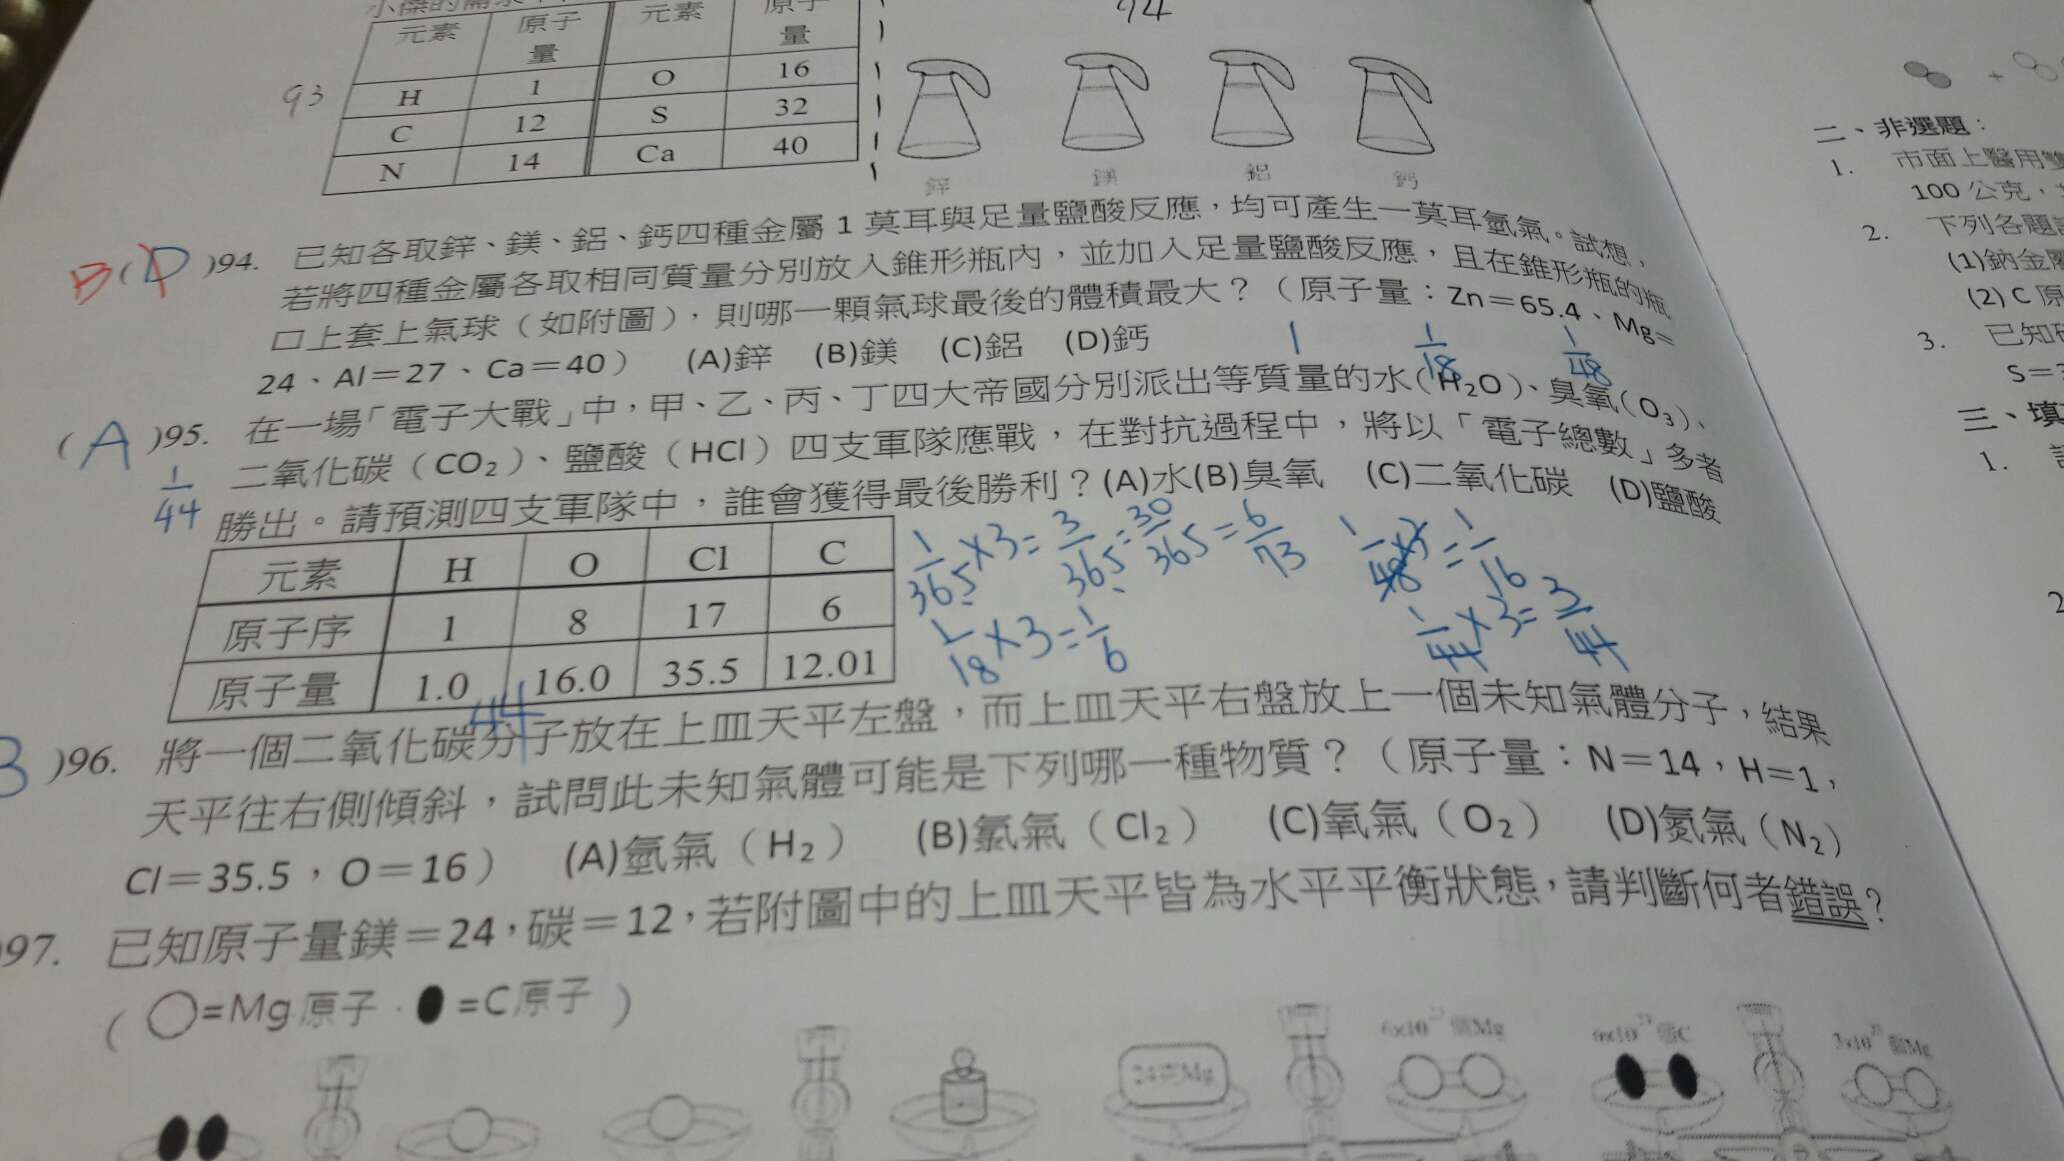 元素 原子量 元素 原子量
H 1 O 16
C 12 S 32
N 14 Ca 40
93
94
鋅 鎂 鋁 鈣
B ( D )94. 已知各取鋅、鎂、鋁、鈣四種金屬 1 莫耳與足量鹽酸反應，均可產生一莫耳氫氣。試想，
若將四種金屬各取相同質量分別放入錐形瓶內，並加入足量鹽酸反應，且在錐形瓶的瓶
口上套上氣球（如附圖），則哪一顆氣球最後的體積最大？（原子量：Zn＝65.4、Mg＝
24、Al＝27、Ca＝40） (A)鋅 (B)鎂 (C)鋁 (D)鈣
1 1/18 1/48
( A )95. 在一場「電子大戰」中，甲、乙、丙、丁四大帝國分別派出等質量的水（H₂O）、臭氧（O₃）、
二氧化碳（CO₂）、鹽酸（HCl）四支軍隊應戰，在對抗過程中，將以「電子總數」多者
勝出。請預測四支軍隊中，誰會獲得最後勝利？(A)水(B)臭氧 (C)二氧化碳 (D)鹽酸
1/44
元素 H O Cl C
原子序 1 8 17 6
原子量 1.0 16.0 35.5 12.01
1/36.5×3=3/36.5=30/365=6/73
1/48×3=1/16
1/18×3=1/6
1/44×3=3/44
44
B )96. 將一個二氧化碳分子放在上皿天平左盤，而上皿天平右盤放上一個未知氣體分子，結果
天平往右側傾斜，試問此未知氣體可能是下列哪一種物質？（原子量：N＝14，H＝1，
Cl＝35.5，O＝16） (A)氫氣（H₂） (B)氯氣（Cl₂） (C)氧氣（O₂） (D)氮氣（N₂）
)97. 已知原子量鎂＝24，碳＝12，若附圖中的上皿天平皆為水平平衡狀態，請判斷何者錯誤？
（○=Mg原子．●=C原子）
24克Mg 6x10²³個Mg 6x10²³個C 3x10²³個Mg
二、非選題：
1. 市面上醫用雙
100 公克，
2. 下列各題
(1)鈉金屬
(2) C 原
3. 已知
S＝3
三、填
1.
2